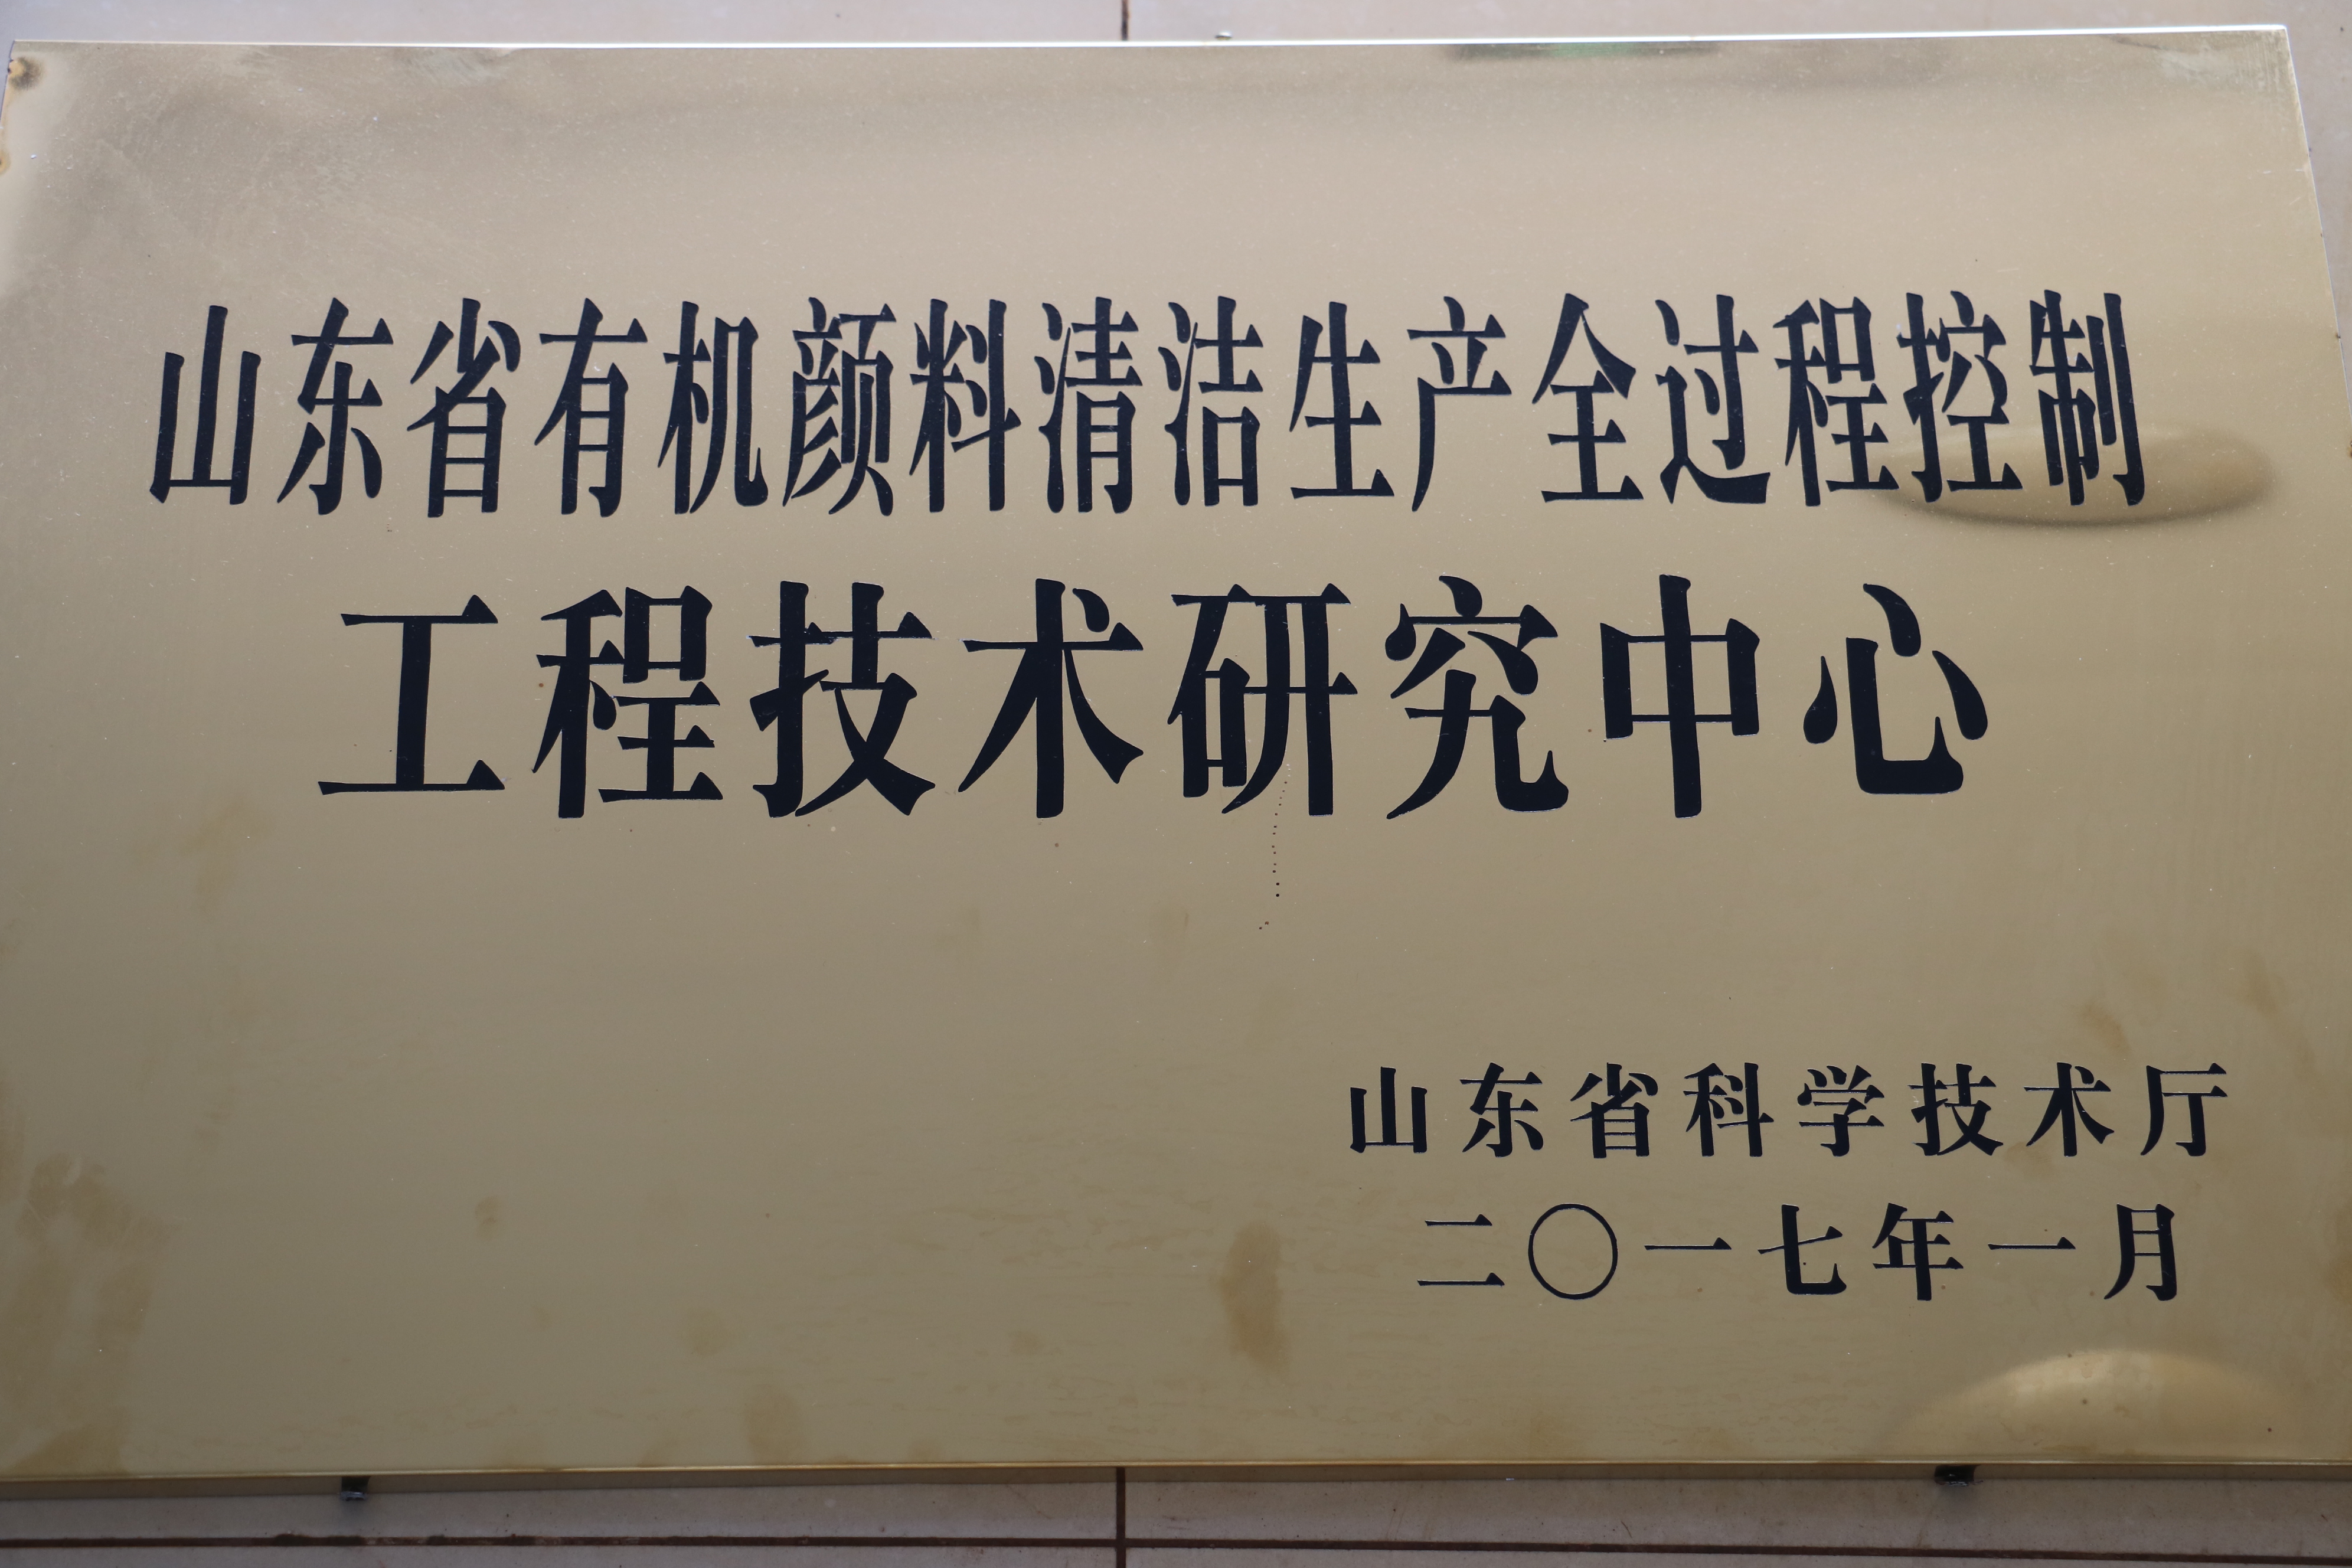 山东省有机颜料清洁生产全过程控制
工程技术研究中心
山东省科学技术厅
二〇一七年一月